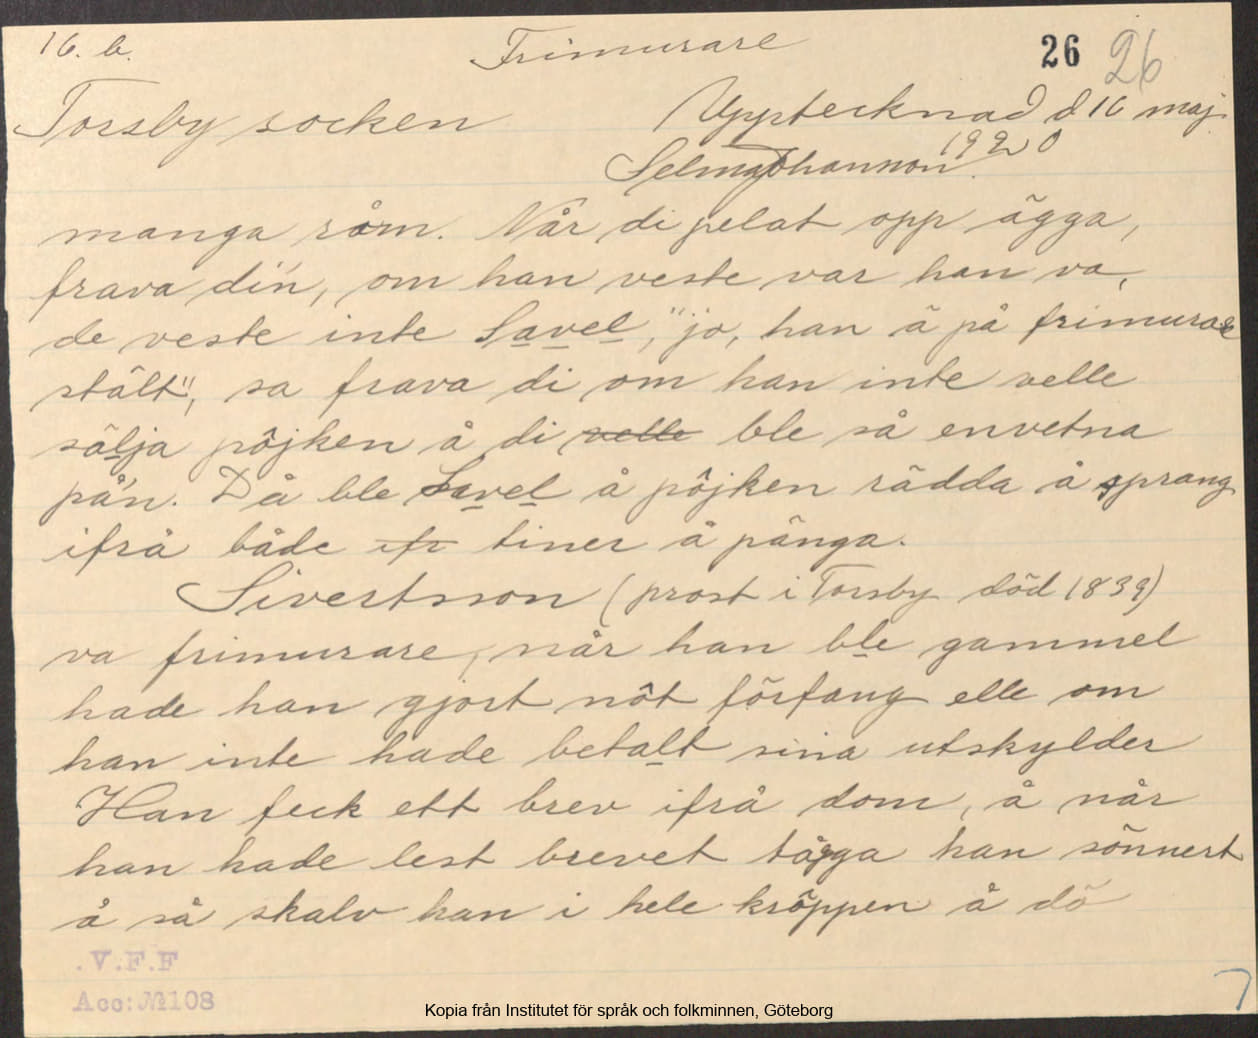 16. b. Frimurare 26 26
Torsby socken Upptecknad d 16 maj
1920
Selma Johansson.
manga röm. När di pelat opp ägga,
frava di'n, om han veste var han va,
de veste inte Savel, "jo, han ä på frimurare
stält", sa frava di om han inte velle
sälja pöjken å di velle ble så envetna
på'n. Då ble Savel å pöjken rädda å sprang
ifrå både ifr tiner å pänga.
Sivertsson (prost i Torsby död 1839)
va frimurare, når han ble gammel
hade han gjort nôt förfang elle om
han inte hade betalt sina utskylder
Han feck ett brev ifrå dom, å når
han hade lest brevet tågga han sönnert
å så skalv han i hele kröppen å dö
V.F.F
Acc: № 108
Kopia från Institutet för språk och folkminnen, Göteborg
7